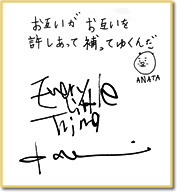 お互いが お互いを
許しあって 補ってゆくんだ
ANATA
Every
Little
Thing